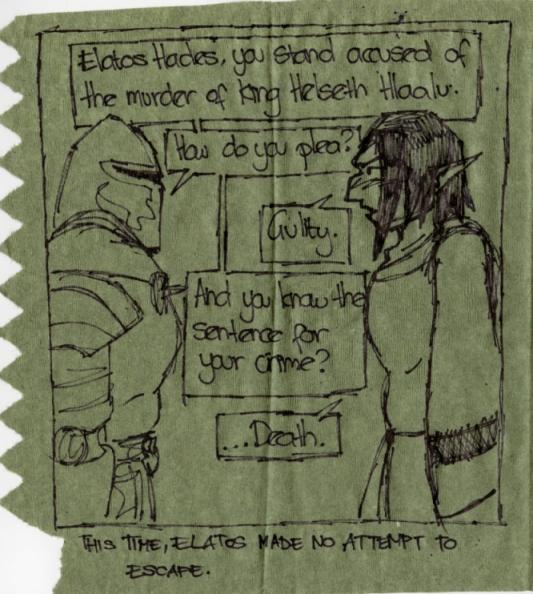 Elatos Hades, you stand accused of
the murder of King Helseth Hlaalu.
How do you plea?
Guilty.
And you know the
sentence for
your crime?
...Death.
THIS TIME, ELATOS MADE NO ATTEMPT TO
ESCAPE.